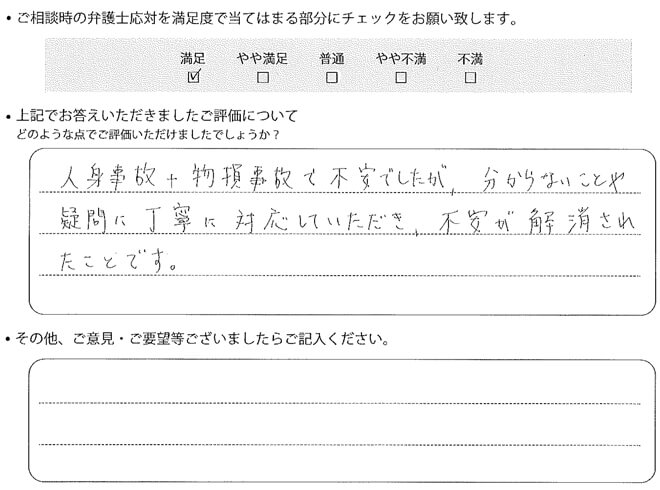 ・ご相談時の弁護士応対を満足度で当てはまる部分にチェックをお願い致します。
満足 やや満足 普通 やや不満 不満
☑ □ □ □ □
・上記でお答えいただきましたご評価について
どのような点でご評価いただけましたでしょうか？
人身事故+物損事故で不安でしたが、分からないことや
疑問に丁寧に対応していただき、不安が解消され
たことです。
・その他、ご意見・ご要望等ございましたらご記入ください。